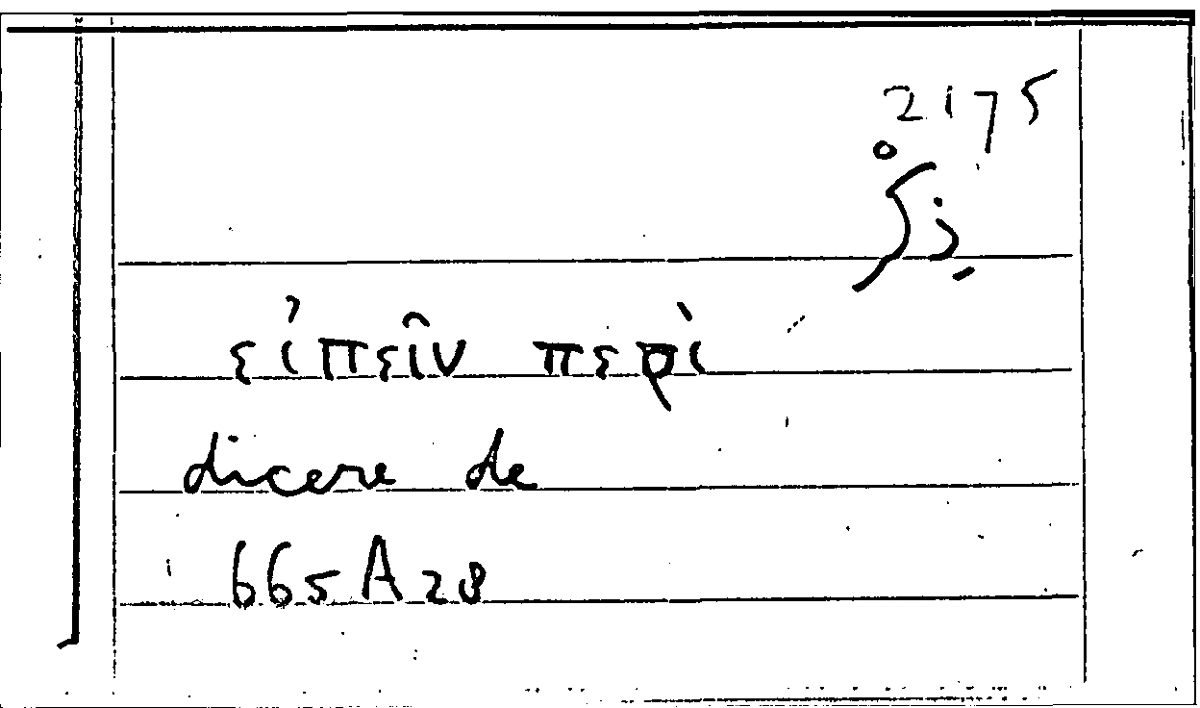 2175
εἰπεῖν περὶ
dicere de
665A28